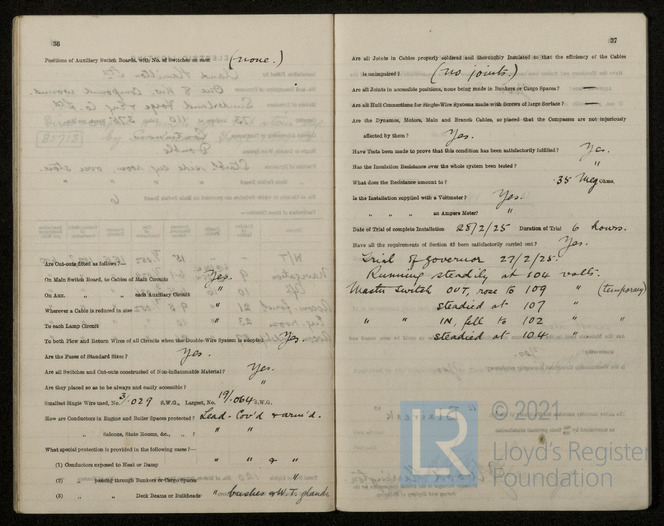 36
Positions of Auxiliary Switch Boards, with No. of Switches on each (none.)
Are Cut-outs fitted as follows?—
On Main Switch Board, to Cables of Main Circuits Yes.
On Aux. " " each Auxiliary Circuit "
Wherever a Cable is reduced in size "
To each Lamp Circuit "
To both Flow and Return Wires of all Circuits when the Double-Wire System is adopted? Yes.
Are the Fuses of Standard Sizes? Yes.
Are all Switches and Cut-outs constructed of Non-inflammable Material? Yes.
Are they placed so as to be always and easily accessible? "
Smallest Single Wire used, No. 3/.029 S.W.G., Largest, No. 19/.064 S.W.G.
How are Conductors in Engine and Boiler Spaces protected? Lead-Cov'd & arm'd.
" Saloons, State Rooms, &c., " ? " "
What special protection is provided in the following cases?—
(1) Conductors exposed to Heat or Damp " " & "
(2) " passing through Bunkers or Cargo Spaces "
(3) " " Deck Beams or Bulkheads " bushes & W.T. glands
37
Are all Joints in Cables properly soldered and thoroughly insulated so that the efficiency of the Cables
is unimpaired? (no joints.)
Are all Joints in accessible positions, none being made in Bunkers or Cargo Spaces? —
Are all Hull Connections for Single-Wire Systems made with Screws of large Surface? —
Are the Dynamos, Motors, Main and Branch Cables, so placed that the Compasses are not injuriously
affected by them? Yes.
Have Tests been made to prove that this condition has been satisfactorily fulfilled? Yes.
Has the Insulation Resistance over the whole system been tested? "
What does the Resistance amount to? .35 Meg Ohms.
Is the Installation supplied with a Voltmeter? Yes.
" " " an Ampere Meter? "
Date of Trial of complete Installation 25/2/25 Duration of Trial 6 hours.
Have all the requirements of Section 42 been satisfactorily carried out? Yes.
Trial of governor 27/2/25.
Running steadily at 104 volts.
Master switch OUT, rose to 109 " (temporary)
steadied at 107 "
" " IN, fell to 102 " "
steadied at 104 "
© 2021
LR
Lloyd's Register
Foundation